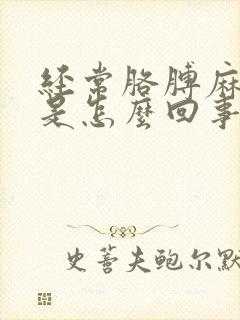 经常胳膊麻
是怎麼回事
史蒈夫鲍尔默